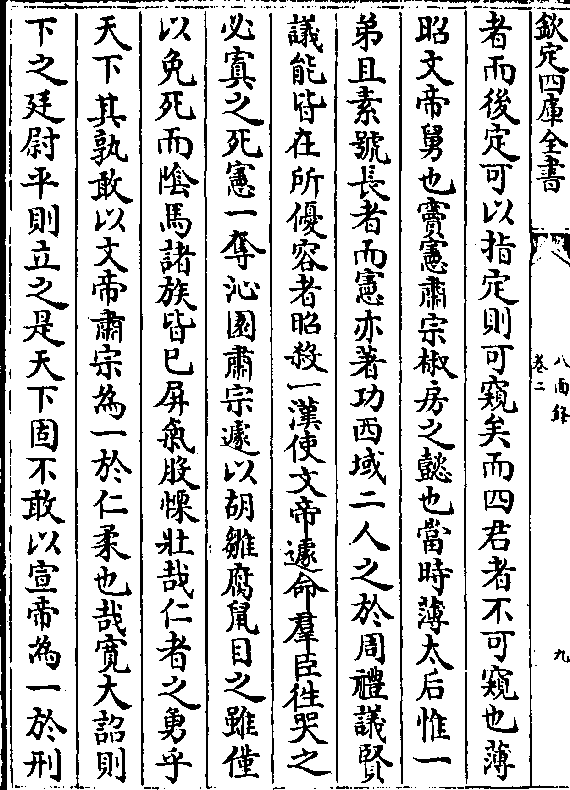 欽定四庫全書
八面鋒
卷二
九
者而後定可以指定則可窺矣而四君者不可窺也薄
昭文帝舅也竇憲肅宗椒房之懿也當時薄太后惟一
弟且素號長者而憲亦著功西域二人之於周禮議賢
議能皆在所優容者昭殺一漢使文帝遽命羣臣往哭之
必寘之死憲一奪沁園肅宗遽以胡雛腐鼠目之雖僅
以免死而陰馬諸族皆已屏氣股慄壯哉仁者之勇乎
天下其孰敢以文帝肅宗為一於仁柔也哉寛大詔則
下之廷尉平則立之是天下固不敢以宣帝為一於刑